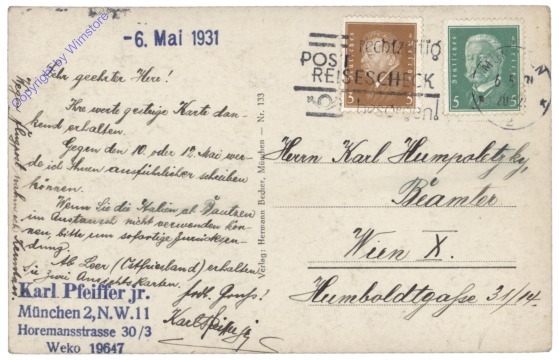 Copyright by Wimstore
-6. Mai 1931
Sehr geehrter Herr!
Ihre werte gestrige Karte dan-
kend erhalten.
Gegen den 10. oder 12. Mai wer-
de ich Ihnen ausführlicher schreiben
können.
Wenn Sie die Italien ab Bautzen
im Austausch nicht verwenden kön-
nen, bitte um sofortige Zurücksen-
dung.
Ab Leer (Ostfriesland) erhalten
Sie zwei Ansichtskarten.
Karl Pfeiffer jr.
Karl Pfeiffer jr.
München 2, N.W. 11
Horemansstrasse 30/3
Weko 19647
Wegen Flugpost
Verlag: Hermann Becher, München — Nr. 133
rechtzeitig
POST
REISESCHECK
besorgen!
Deutsches Reich
5 5
Deutsches Reich
5 5
Herrn Karl Humpoletzky,
Beamter
Wien X.
Humboldtgasse 31/14.